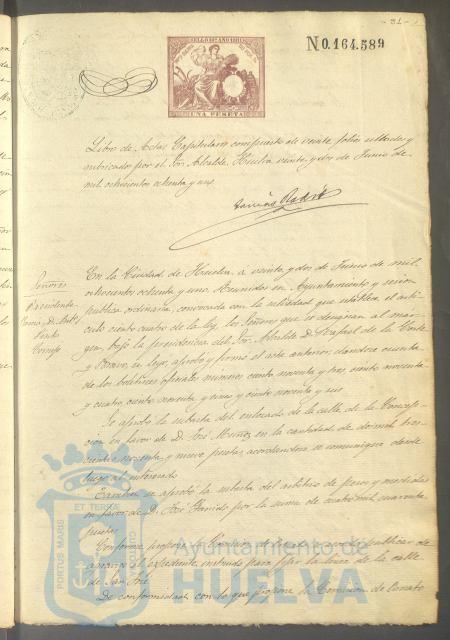 - 31 -
SELLO 11º AÑO 1881
UNA PESETA
N 0.164.589
Libro de Actas Capitulares compuesto de veinte folios útiles y
rubricado por el Sor. Alcalde. Huelva veinte y dos de Junio de
mil ochocientos ochenta y uno.
Señores
Presidente
En la Ciudad de Huelva, a veinte y dos de Junio de mil
ochocientos ochenta y uno. Reunidos en Ayuntamiento y sesión
pública ordinaria, convocada con la antelación que establece el artí-
culo ciento cuatro de la ley, los Señores que se designan al mar-
gen, bajo la presidencia del Sor. Alcalde D. Rafael de la Corte
y Bravo, se leyó, aprobó y firmó el acta anterior, dándose cuenta
de los boletines oficiales números ciento noventa y tres, ciento noventa
y cuatro, ciento noventa y cinco y ciento noventa y seis.
Se aprobó la subasta del enlosado de la calle de la Concep-
ción en favor de D. José Muñoz en la cantidad de dos mil tres-
cientas noventa y nueve pesetas, acordándose se comunique desde
luego al interesado.
También se aprobó la subasta del arbitrio de pesos y medidas
en favor de D. José Garrido por la suma de cuatro mil cuarenta
pesetas.
Conforme propone la Comisión de
el expediente instruido para fijar la línea de la calle
de San José.
De conformidad con lo que propone la Comisión de Ornato
PORTUS MARIS
ET TERRAE
CUSTODIA
Ayuntamiento de
HUELVA